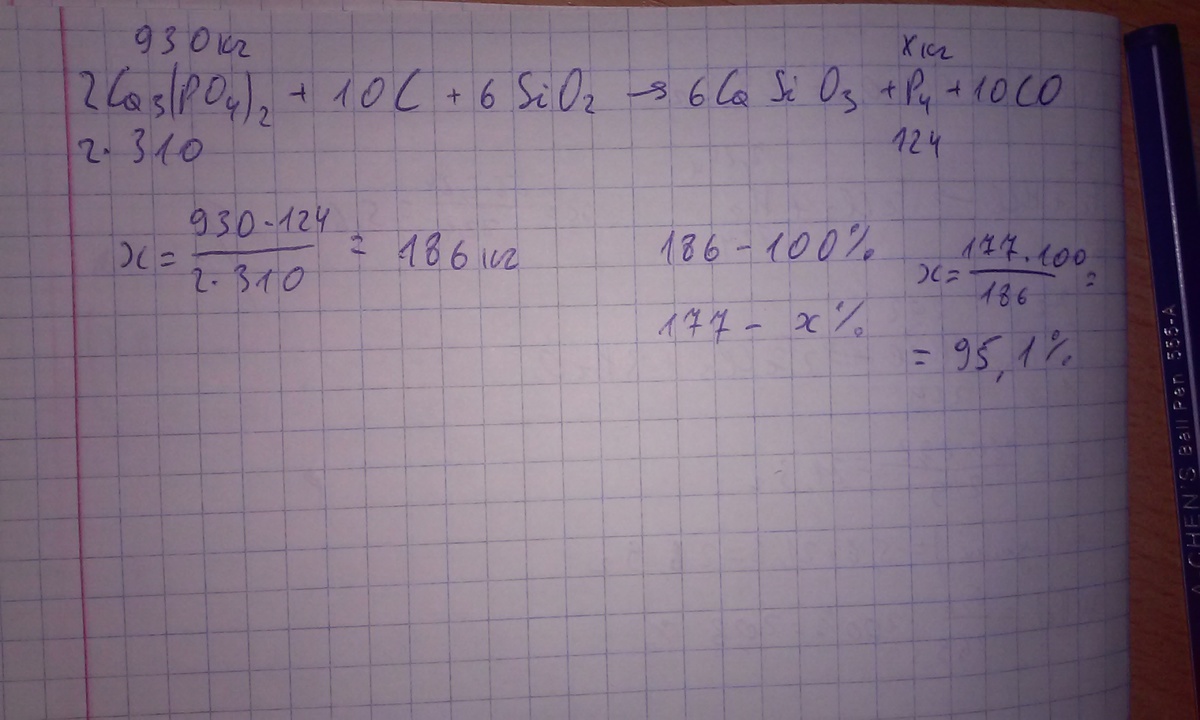 930 кг
x кг
2Ca₃(PO₄)₂ + 10C + 6SiO₂ → 6CaSiO₃ + P₄ + 10CO
2·310
124
x = 930·124 / 2·310 = 186 кг
186 – 100%
177 – x%
x = 177·100 / 186 =
= 95,1%
CHEN'S Ball Pen 555-A